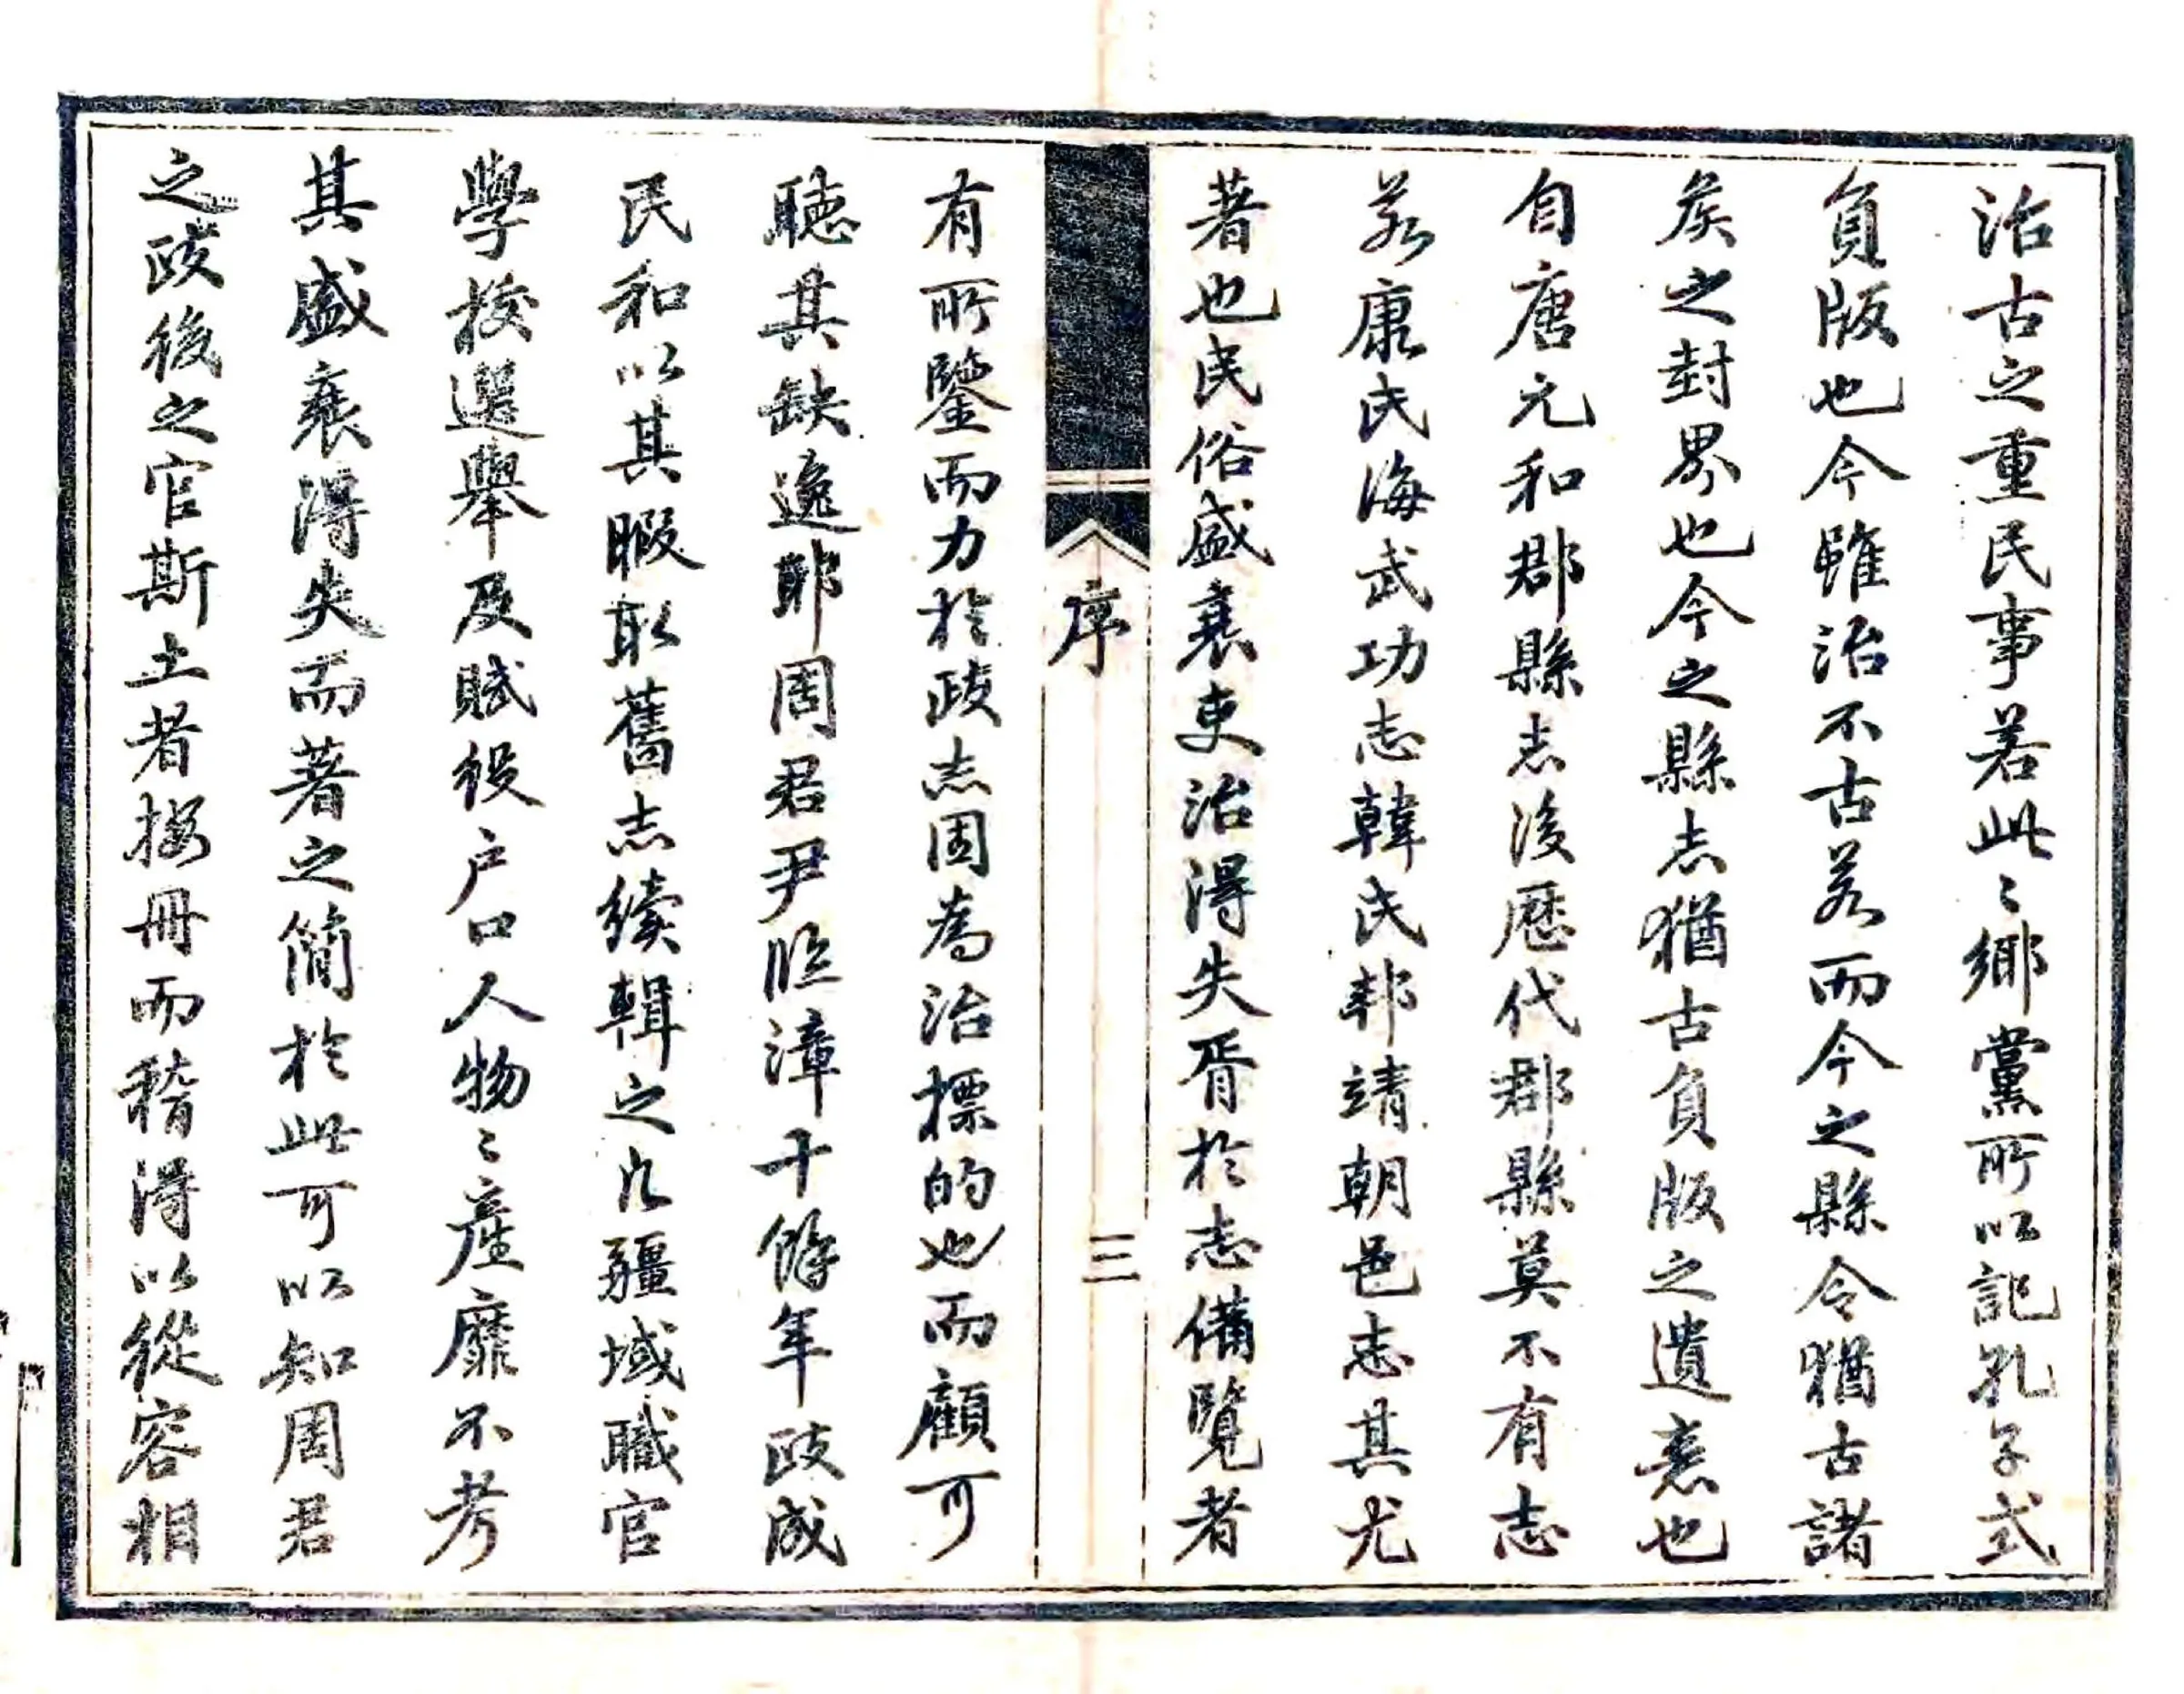 治古之重民事若此〻鄉黨所以記孔子式
負版也今雖治不古若而今之縣令猶古諸
矦之封界也今之縣志猶古負版之遺意也
自唐元和郡縣志後歷代郡縣莫不有志
若康氏海武功志韓氏邦靖朝邑志其尤
著也民俗盛衰吏治得失胥於志備覽者
序
三
有所鑒而力於政志固為治標的也而顧可
聽其缺逸耶周君尹臨漳十餘年政成
民和以其暇取舊志續輯之凡疆域職官
學挍選舉及賦役户口人物〻產靡不考
其盛衰得失而著之簡於此可以知周君
之政後之官斯土者按冊而稽得以從容相